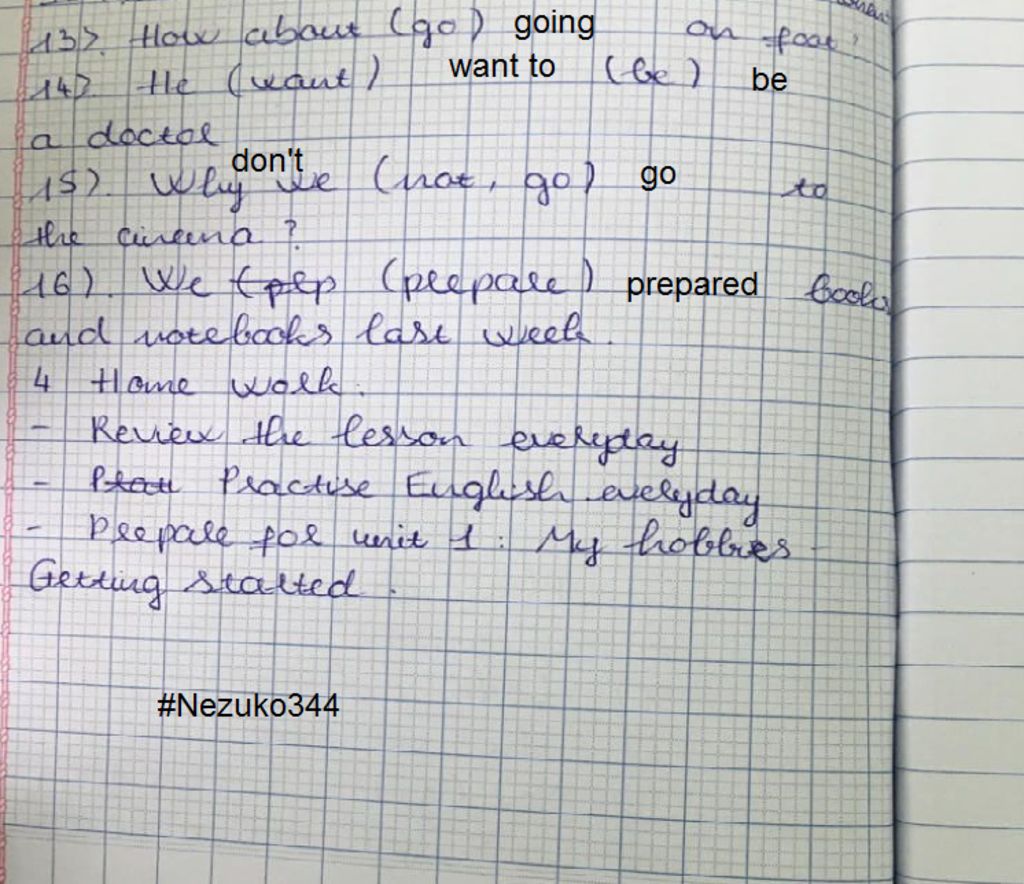 13). How about (go) going on foot?
14) He (want) want to (be) be
a doctor
don't
15). Why we (not, go) go to
the cinema ?
16). We (prep (prepare) prepared books
and notebooks last week.
4 Home work.
- Review the lesson everyday
- Practise English everyday
- Prepare for unit 1: My hobbies -
Getting started.
#Nezuko344